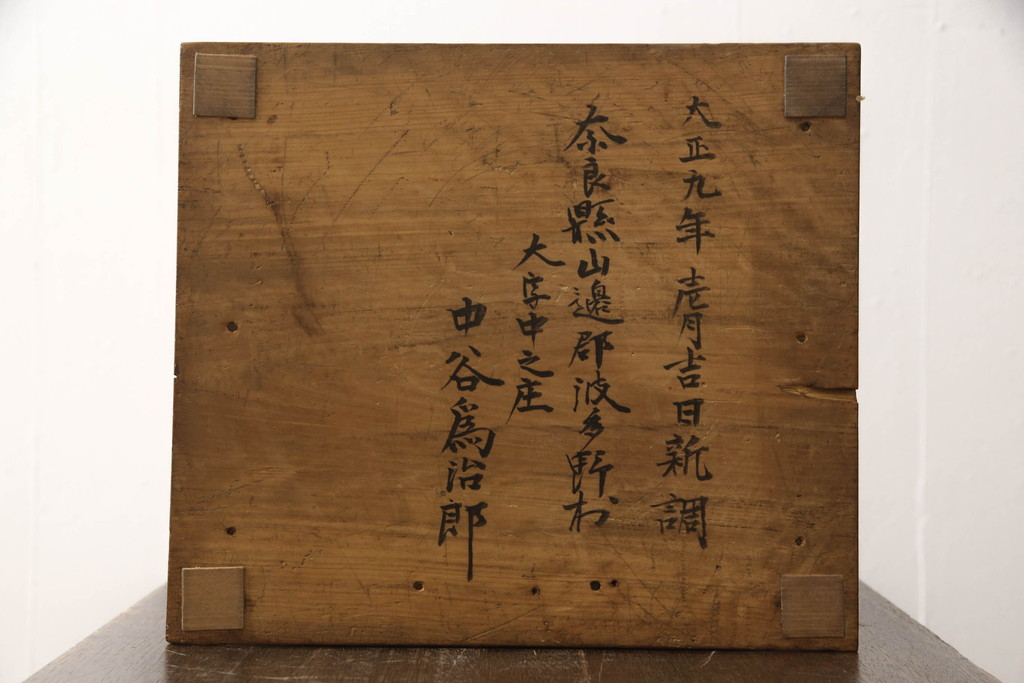 大正九年壱月吉日新調
奈良縣山邊郡波多野村
大字中之庄
中谷爲治郎